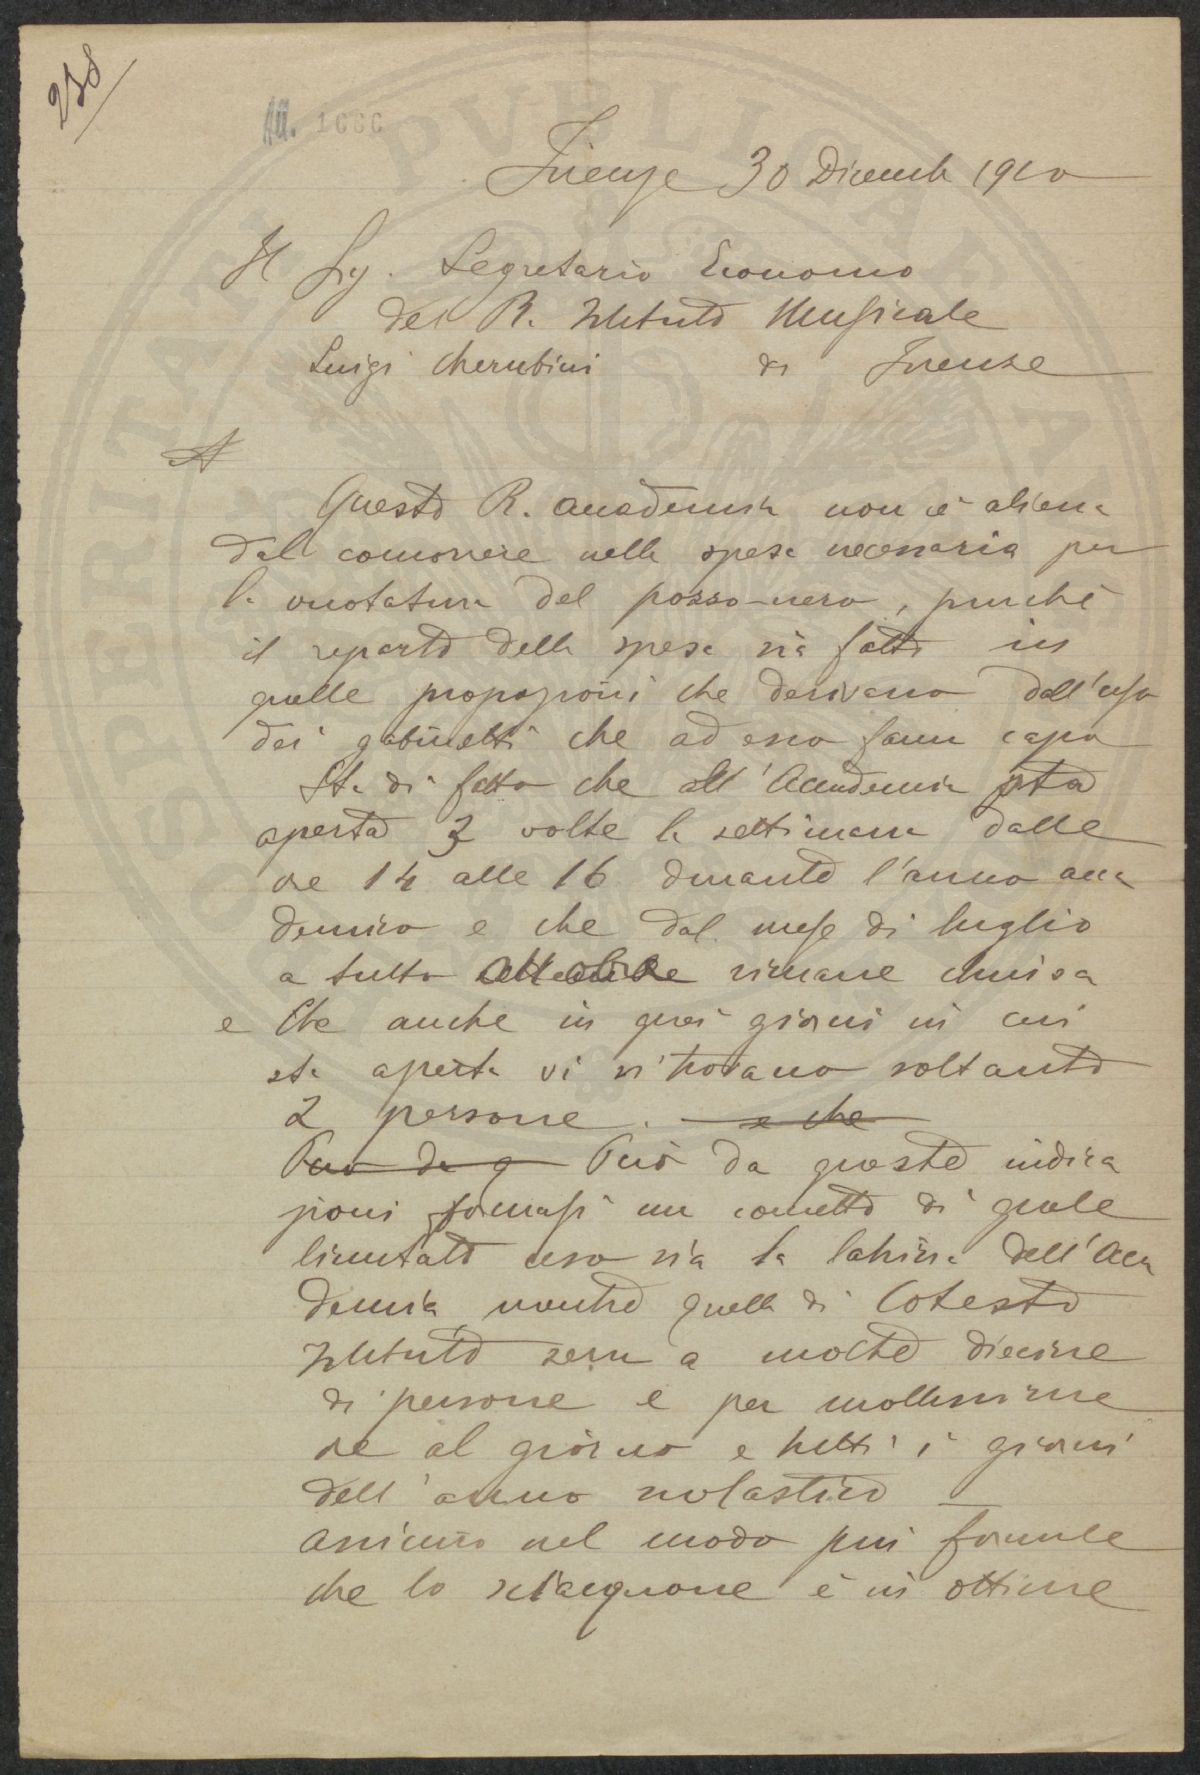 238
1000
Firenze 30 Dicemb 1910
Il Sig. Segretario Economo
del R. Istituto Musicale
Luigi Cherubini di Firenze
A
Questa R. Accademia non è aliena
dal concorrere nella spesa necessaria per
la vuotatura del pozzo-nero, purchè
il reparto della spesa sia fatto in
quelle proporzioni che derivano dall'uso
dei gabinetti che ad esso fann capo
Sta di fatto che all'Accademia sta
aperta 3 volte la settimana dalle
ore 14 alle 16 durante l'anno acca
demico e che dal mese di luglio
a tutto ottobre rimane chiusa
e che anche in quei giorni in cui
sta aperta vi si trovano soltanto
2 persone. e che
Può da q Può da queste indica
zioni formarsi un concetto di quale
limitato uso sia la latrina dell'Acca
demia, mentre quella di Cotesto
Istituto serve a molte diecine
di persone e per moltissime
ore al giorno e tutti i giorni
dell'anno scolastico
Assicuro nel modo più formale
che lo sciacquone è in ottime